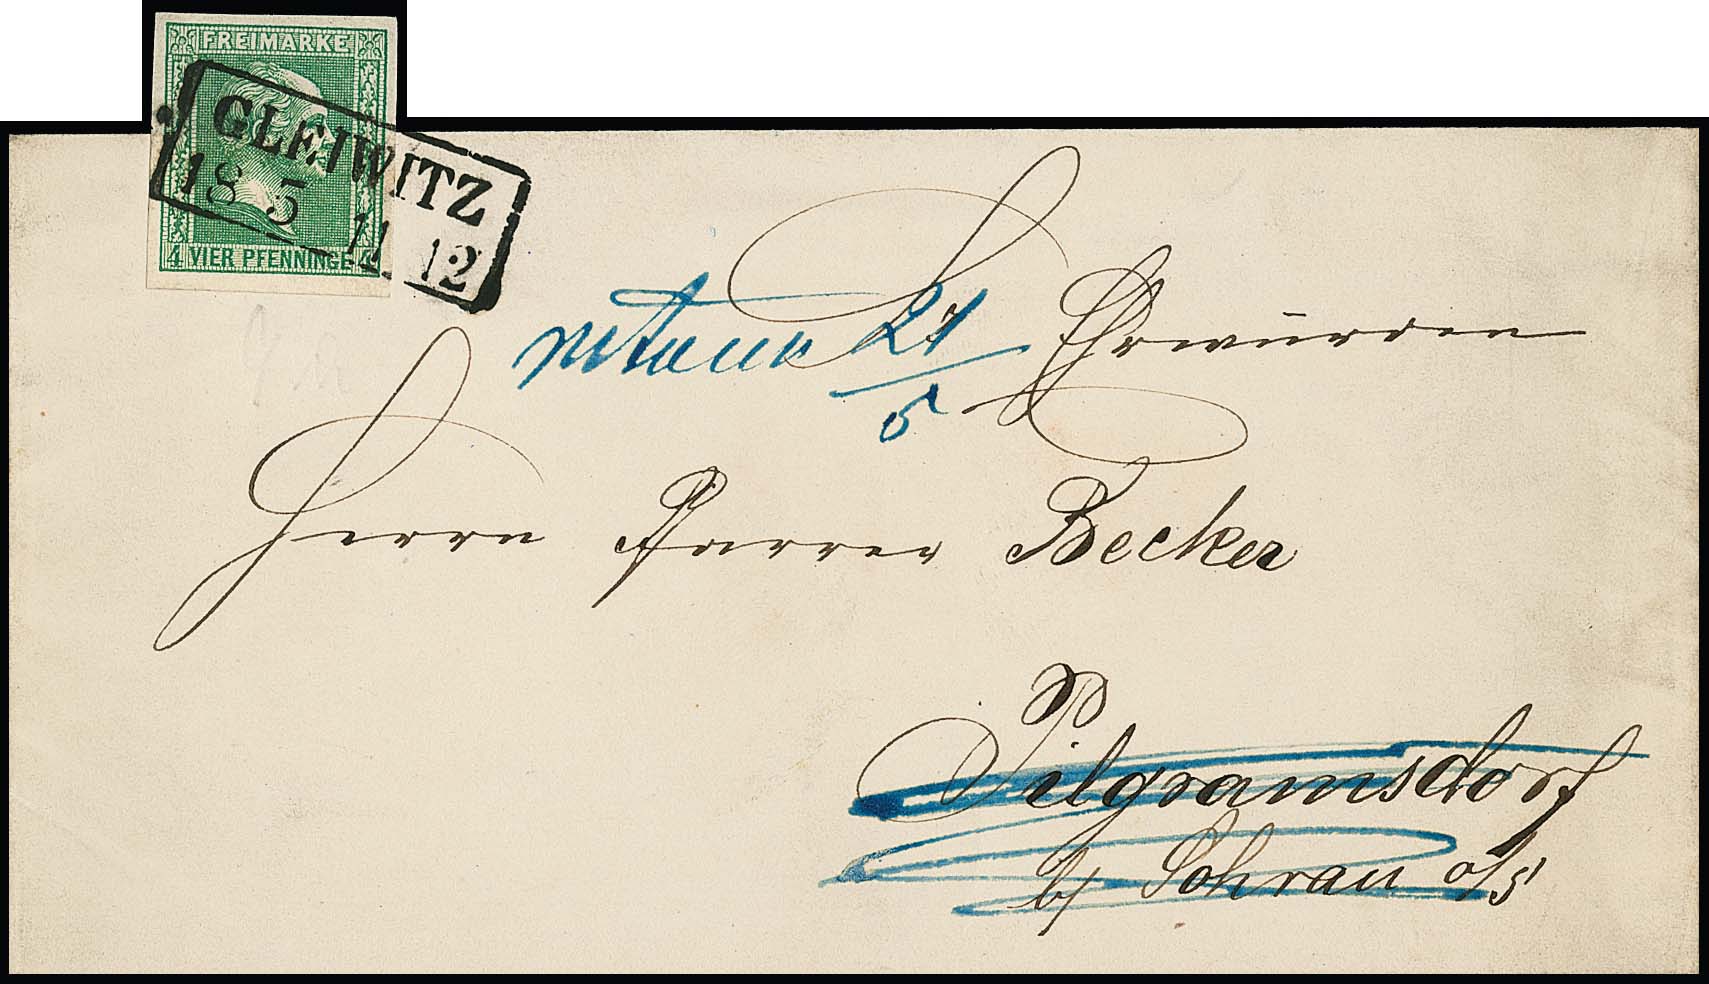 FREIMARKE
4 VIER PFENNINGE 4
GLEIWITZ
18 5 11 12
Sr Ehrwürden
retour 21/5
Herrn Pfarrer Becker
Pilgramsdorf
b/ Sohrau o/S